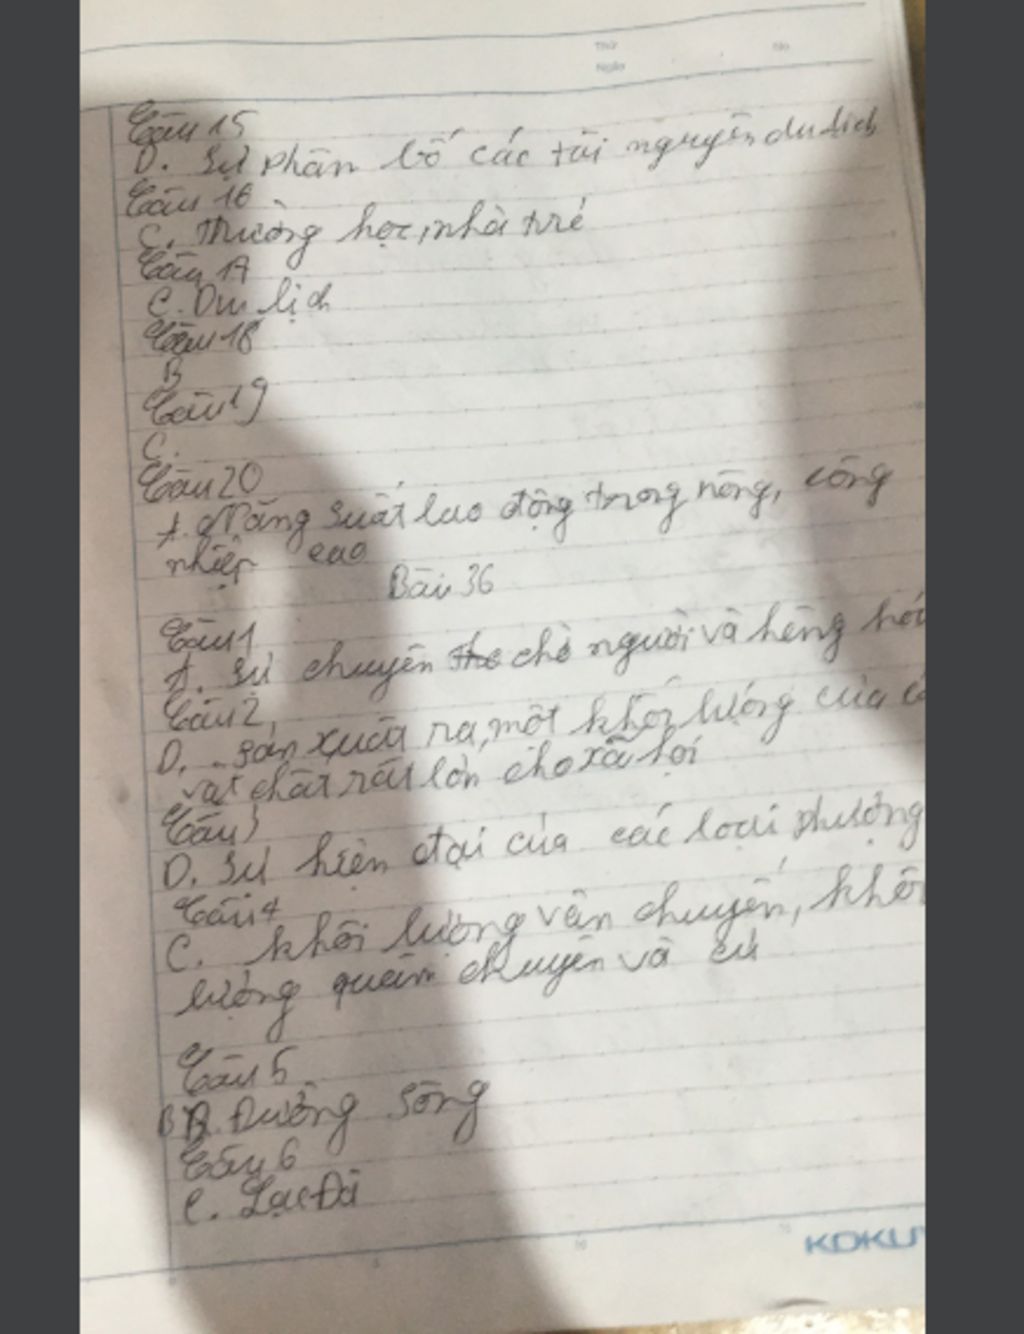 Thứ
No
Ngày
Câu 15
D. Sự phân bố các tài nguyên du lịch
Câu 16
C. trường học, nhà trẻ
Câu 17
C. Du lịch
Câu 18
B
Câu 19
C.
Câu 20
A. Năng suất lao động trong nông, công
nhiệp cao
Bài 36
Câu 1
A. Sự chuyên chở người và hàng hoá
Câu 2
D. sản xuất ra, một khối lượng của
vật chất rất lớn cho xã hội
Câu 3
D. Sự hiện đại của các loại phương
Câu 4
C. khối lượng vận chuyển, khối
lượng luân chuyển và cự
Câu 5
B. Đường sông
Câu 6
C. Lạc Đà
KOKU